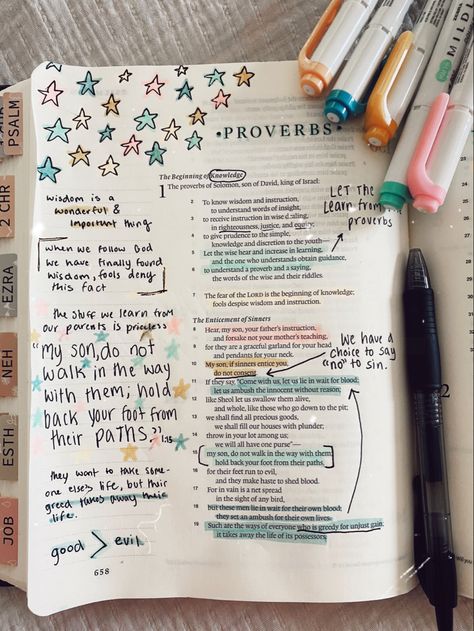 PSALM
2 CHR
EZRA
NEH
ESTH
JOB
MILDL
• PROVERBS •
The Beginning of Knowledge
1 The proverbs of Solomon, son of David, king of Israel:
2 To know wisdom and instruction,
to understand words of insight,
3 to receive instruction in wise dealing,
in righteousness, justice, and equity;
4 to give prudence to the simple,
knowledge and discretion to the youth—
5 Let the wise hear and increase in learning,
and the one who understands obtain guidance,
6 to understand a proverb and a saying,
the words of the wise and their riddles.
7 The fear of the LORD is the beginning of knowledge;
fools despise wisdom and instruction.
The Enticement of Sinners
8 Hear, my son, your father's instruction,
and forsake not your mother's teaching,
9 for they are a graceful garland for your head
and pendants for your neck.
10 My son, if sinners entice you,
do not consent.
11 If they say, "Come with us, let us lie in wait for blood;
let us ambush the innocent without reason;
12 like Sheol let us swallow them alive,
and whole, like those who go down to the pit;
13 we shall find all precious goods,
we shall fill our houses with plunder;
14 throw in your lot among us;
we will all have one purse"—
15 my son, do not walk in the way with them;
hold back your foot from their paths,
16 for their feet run to evil,
and they make haste to shed blood.
17 For in vain is a net spread
in the sight of any bird,
18 but these men lie in wait for their own blood;
they set an ambush for their own lives.
19 Such are the ways of everyone who is greedy for unjust gain;
it takes away the life of its possessors.
LET THE
Learn from the
proverbs
We have a
choice to say
"no" to sin.
wisdom is a
wonderful &
important thing
when we follow God
we have finally found
wisdom, fools deny
this fact
the stuff we learn from
our parents is priceless
"my son, do not
walk in the way
with them; hold
back your foot from
their paths."
15
they want to take some-
one else's life, but their
greed takes away their
life.
good > evil
658